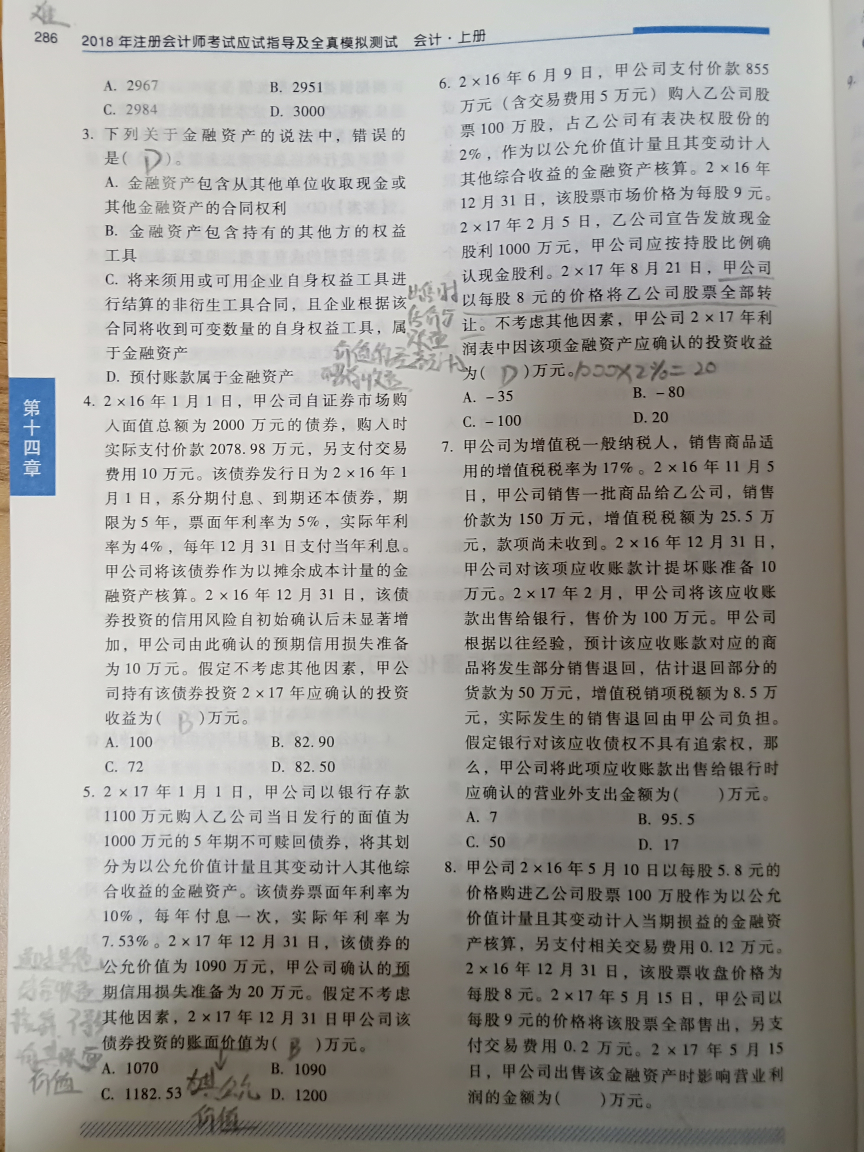 难
286 2018年注册会计师考试应试指导及全真模拟测试 会计·上册
A. 2967 B. 2951
C. 2984 D. 3000
3. 下列关于金融资产的说法中，错误的
是( D )。
A. 金融资产包含从其他单位收取现金或
其他金融资产的合同权利
B. 金融资产包含持有的其他方的权益
工具
C. 将来须用或可用企业自身权益工具进
行结算的非衍生工具合同，且企业根据该
合同将收到可变数量的自身权益工具，属
于金融资产
D. 预付账款属于金融资产
4. 2×16年1月1日，甲公司自证券市场购
入面值总额为2000万元的债券，购入时
实际支付价款2078.98万元，另支付交易
费用10万元。该债券发行日为2×16年1
月1日，系分期付息、到期还本债券，期
限为5年，票面年利率为5%，实际年利
率为4%，每年12月31日支付当年利息。
甲公司将该债券作为以摊余成本计量的金
融资产核算。2×16年12月31日，该债
券投资的信用风险自初始确认后未显著增
加，甲公司由此确认的预期信用损失准备
为10万元。假定不考虑其他因素，甲公
司持有该债券投资2×17年应确认的投资
收益为( B )万元。
A. 100 B. 82.90
C. 72 D. 82.50
5. 2×17年1月1日，甲公司以银行存款
1100万元购入乙公司当日发行的面值为
1000万元的5年期不可赎回债券，将其划
分为以公允价值计量且其变动计入其他综
合收益的金融资产。该债券票面年利率为
10%，每年付息一次，实际年利率为
7.53%。2×17年12月31日，该债券的
公允价值为1090万元，甲公司确认的预
期信用损失准备为20万元。假定不考虑
其他因素，2×17年12月31日甲公司该
债券投资的账面价值为( B )万元。
A. 1070 B. 1090
C. 1182.53 D. 1200
价值
第十四章
6. 2×16年6月9日，甲公司支付价款855
万元（含交易费用5万元）购入乙公司股
票100万股，占乙公司有表决权股份的
2%，作为以公允价值计量且其变动计入
其他综合收益的金融资产核算。2×16年
12月31日，该股票市场价格为每股9元。
2×17年2月5日，乙公司宣告发放现金
股利1000万元，甲公司应按持股比例确
认现金股利。2×17年8月21日，甲公司
以每股8元的价格将乙公司股票全部转
让。不考虑其他因素，甲公司2×17年利
润表中因该项金融资产应确认的投资收益
为( D )万元。1000×2%=20
A. -35 B. -80
C. -100 D. 20
7. 甲公司为增值税一般纳税人，销售商品适
用的增值税税率为17%。2×16年11月5
日，甲公司销售一批商品给乙公司，销售
价款为150万元，增值税税额为25.5万
元，款项尚未收到。2×16年12月31日，
甲公司对该项应收账款计提坏账准备10
万元。2×17年2月，甲公司将该应收账
款出售给银行，售价为100万元。甲公司
根据以往经验，预计该应收账款对应的商
品将发生部分销售退回，估计退回部分的
货款为50万元，增值税销项税额为8.5万
元，实际发生的销售退回由甲公司负担。
假定银行对该应收债权不具有追索权，那
么，甲公司将此项应收账款出售给银行时
应确认的营业外支出金额为( )万元。
A. 7 B. 95.5
C. 50 D. 17
8. 甲公司2×16年5月10日以每股5.8元的
价格购进乙公司股票100万股作为以公允
价值计量且其变动计入当期损益的金融资
产核算，另支付相关交易费用0.12万元。
2×16年12月31日，该股票收盘价格为
每股8元。2×17年5月15日，甲公司以
每股9元的价格将该股票全部售出，另支
付交易费用0.2万元。2×17年5月15
日，甲公司出售该金融资产时影响营业利
润的金额为( )万元。